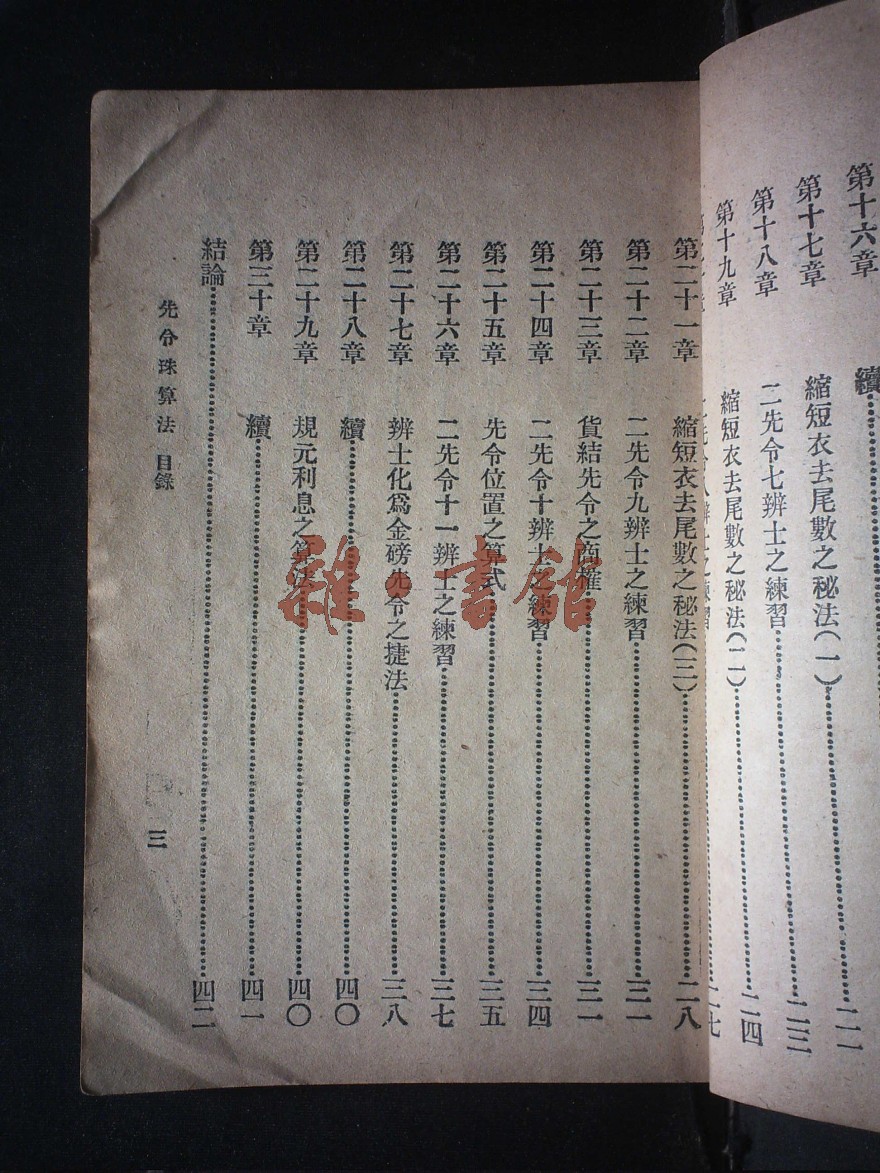 第十六章 續……二一
第十七章 縮短衣去尾數之秘法(一)……二三
第十八章 二先令七辨士之練習……二三
第十九章 縮短衣去尾數之秘法(二)……二四
二先令八辨士之練習……二七
第二十一章 縮短衣去尾數之秘法(三)……二八
第二十二章 二先令九辨士之練習……三一
第二十三章 貨結先令之商榷……三一
第二十四章 二先令十辨士之練習……三四
第二十五章 先令位置之算式……三五
第二十六章 二先令十一辨士之練習……三七
第二十七章 辨士化爲金磅先令之捷法……三八
第二十八章 續……四〇
第二十九章 規元利息之算法……四〇
第三十章 續……四一
結論……四二
先令珠算法 目錄
三
雜·書館